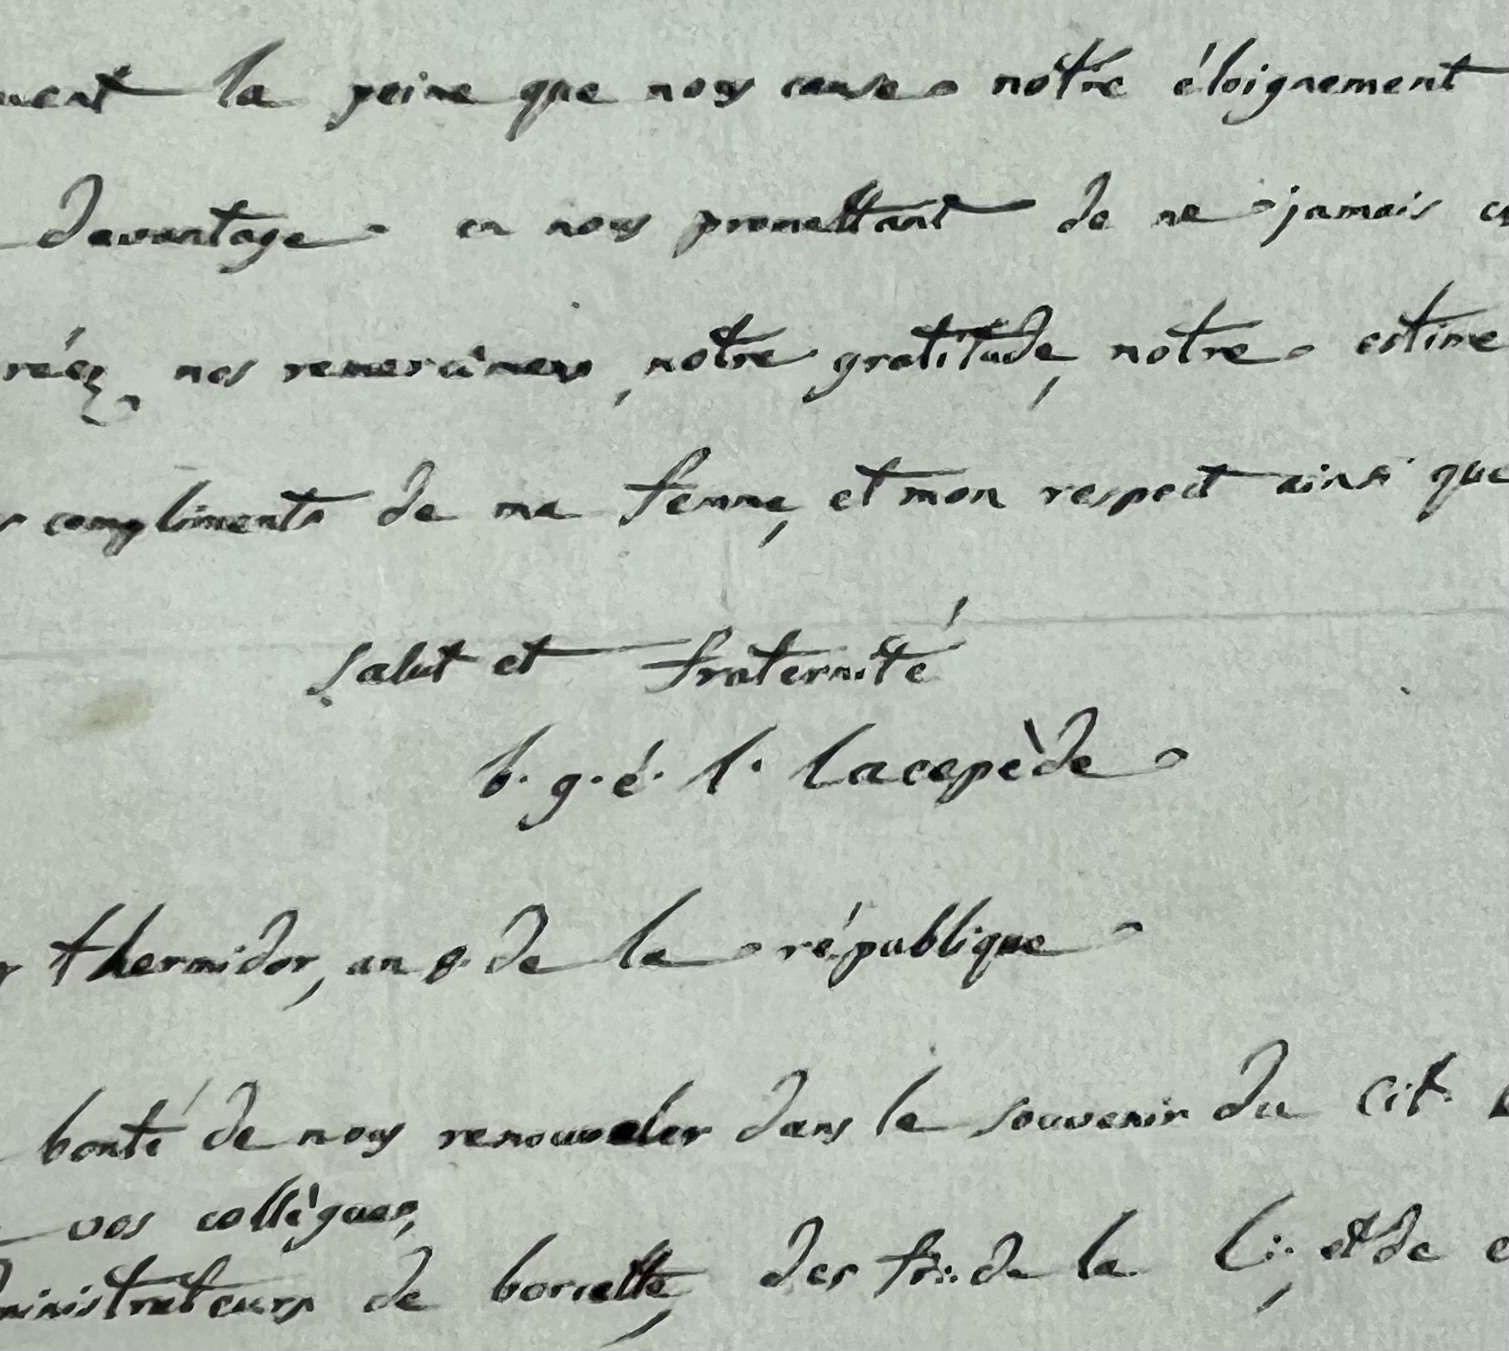 la peine que nous cause notre éloignement
davantage en nous promettant de ne jamais
nos remercimens, notre gratitude, notre estime
compliments de ma femme, et mon respect ainsi que
salut et fraternité
b. g. é. l. lacepède
thermidor, an 8. de la république
bonté de nous renouveler dans le souvenir du Cit.
vos collègues,
de borcette, des fr∴ de la L∴, et de